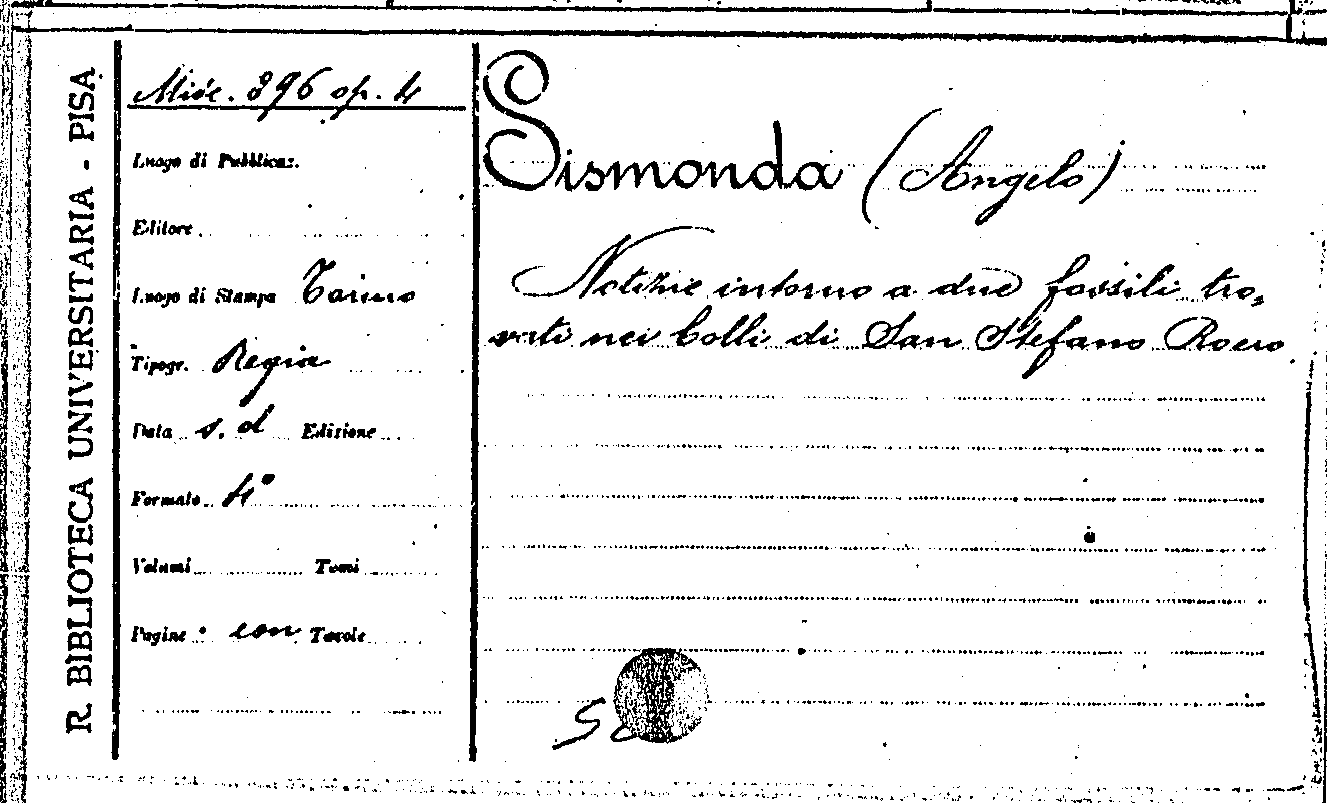 R. BIBLIOTECA UNIVERSITARIA - PISA
Misc. 396 op. 4
Luogo di Pubblicaz.
Editore
Luogo di Stampa Torino
Tipogr. Regia
Data s. d Edizione
Formato 4°
Volumi Tomi
Pagine con Tavole
Sismonda (Angelo)
Notizie intorno a due fossili tro,
vati nei Colli di San Stefano Roero